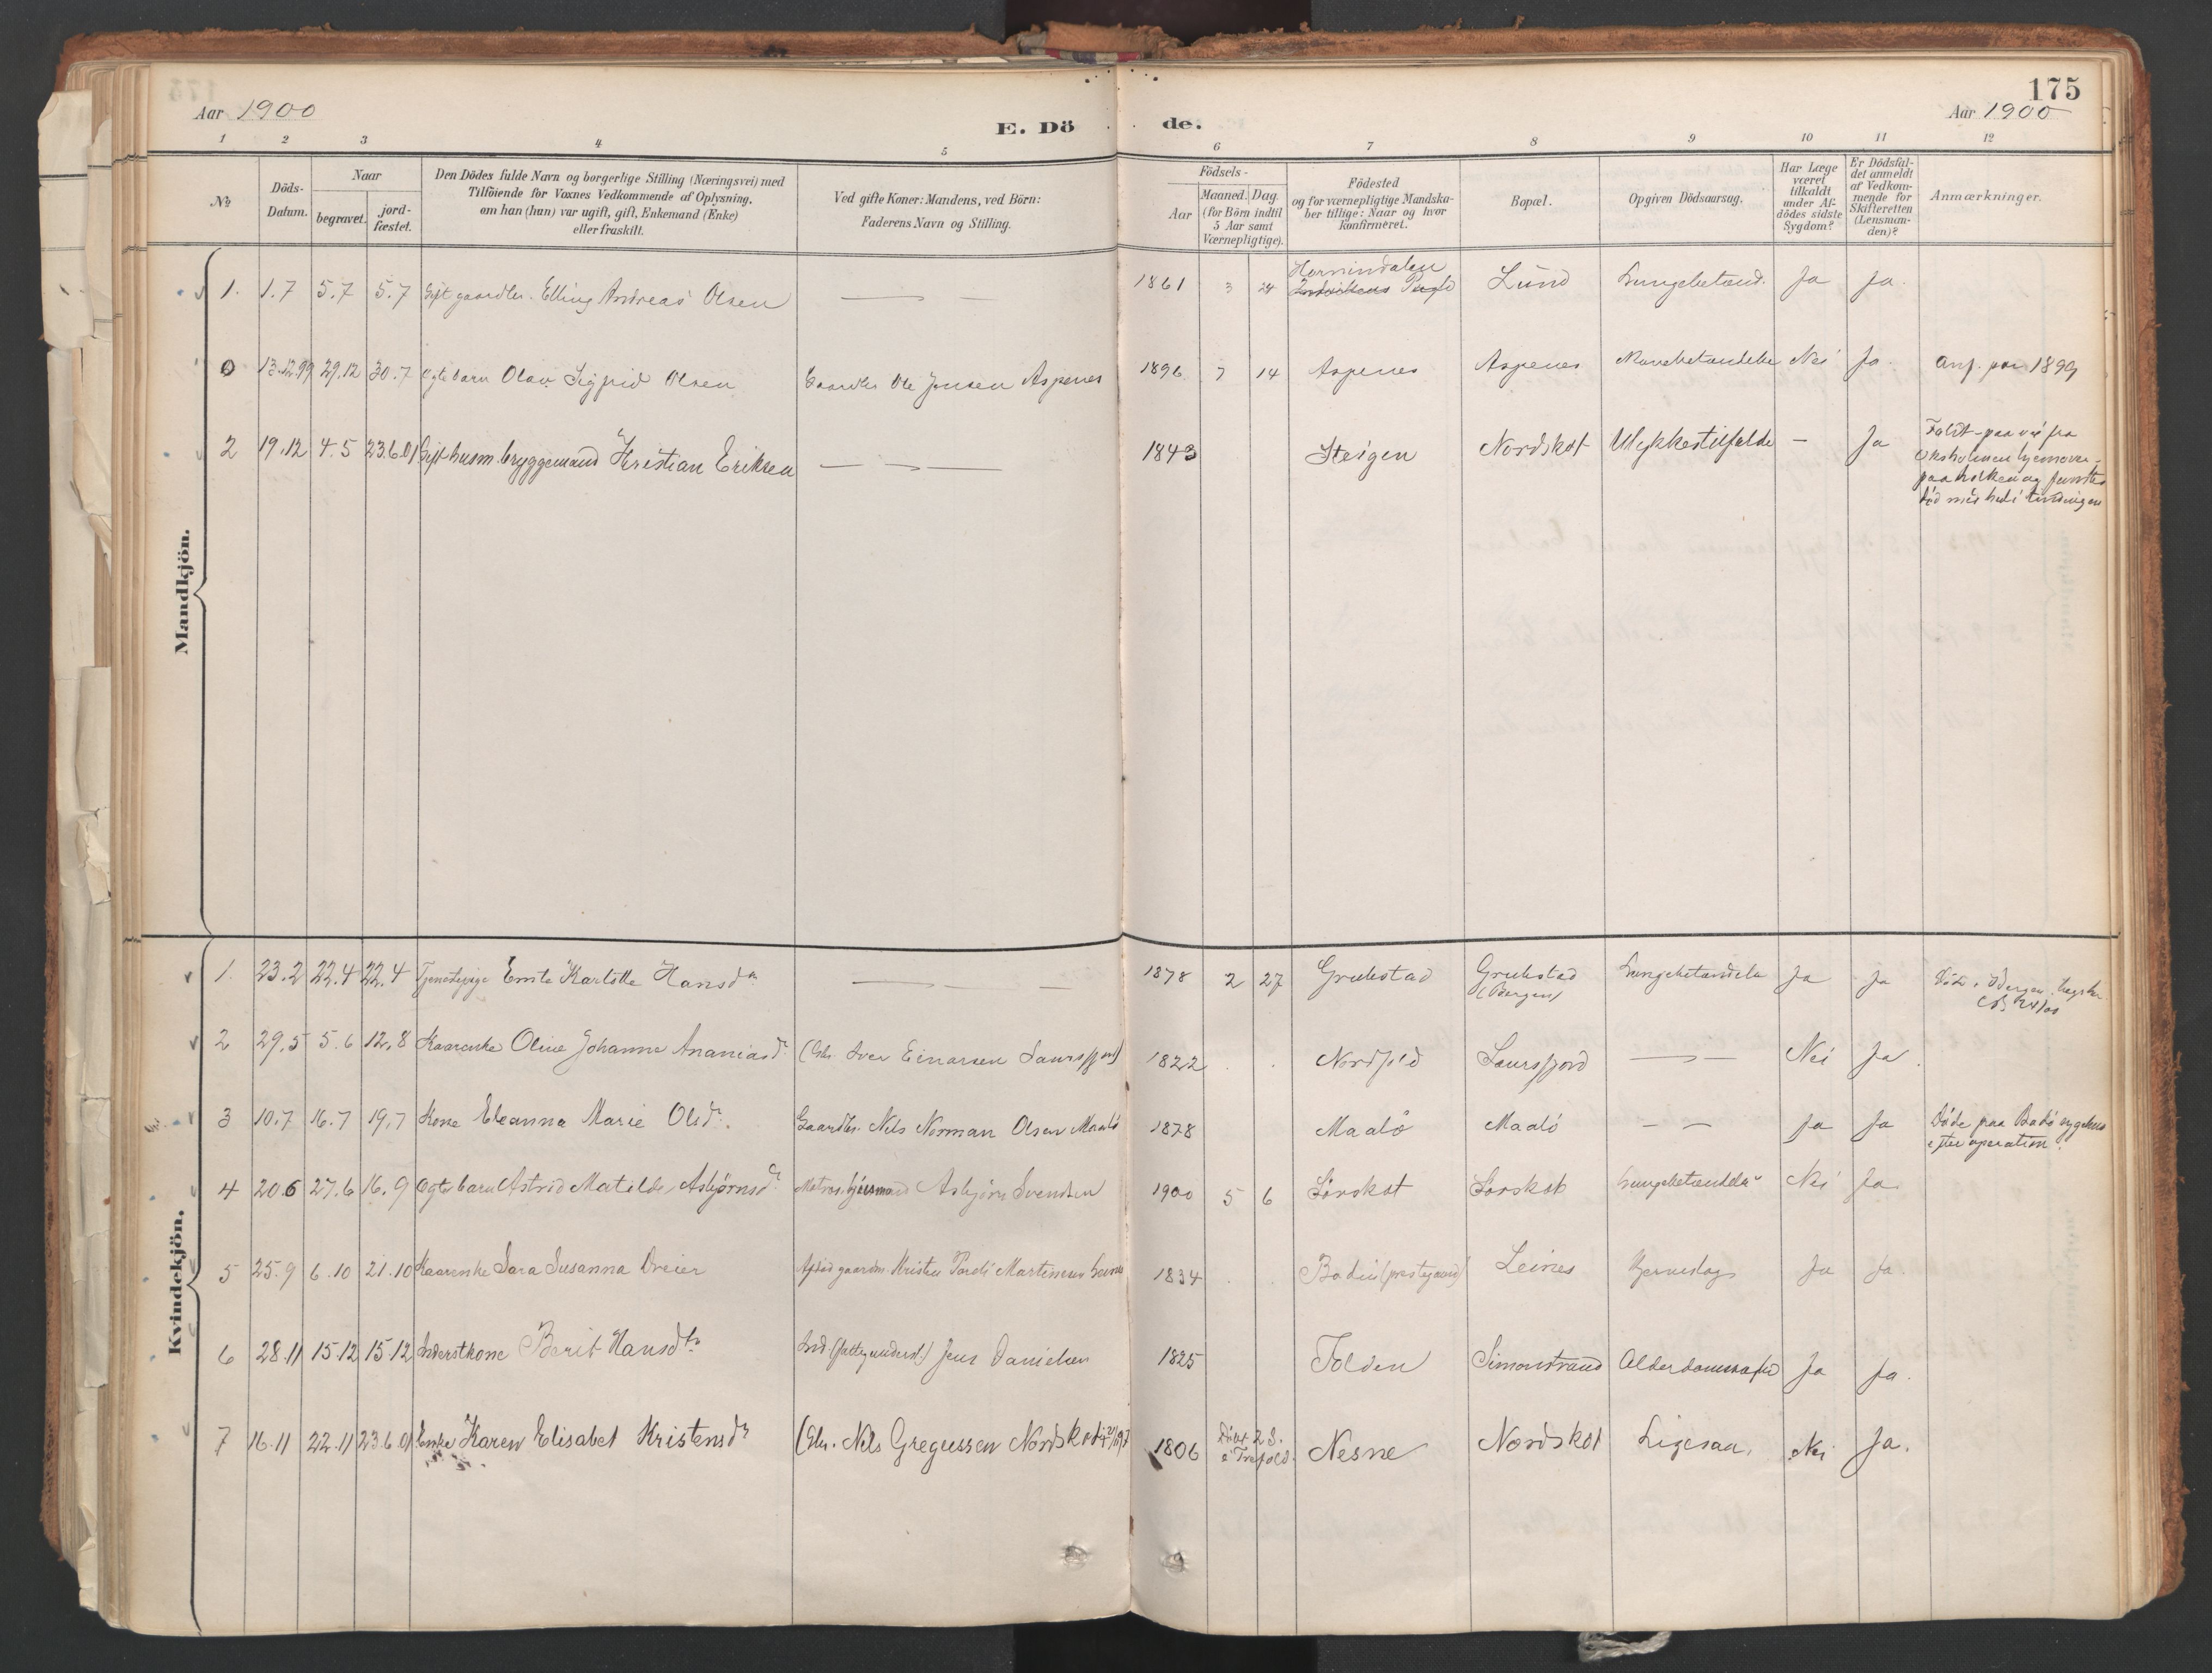 175
Aar 1900
E. Dö de.
Aar 1900
1 2 3 4 5 6 7 8 9 10 11 12
№
Döds-Datum.
Naar
begravet.
jord-fæstet.
Den Dödes fulde Navn og borgerlige Stilling (Næringsvei) med
Tilföiende for Voxnes Vedkommende af Oplysning,
om han (hun) var ugift, gift, Enkemand (Enke)
eller fraskilt.
Ved gifte Koner: Mandens, ved Börn:
Faderens Navn og Stilling.
Födsels-
Aar
Maaned. Dag.
(for Börn indtil
5 Aar samt
Værnepligtige).
Födested
og for værnepligtige Mandska-
ber tillige: Naar og hvor
konfirmeret.
Bopæl.
Opgiven Dödsaarsag.
Har Læge
været
tilkaldt
under Af-
dödes sidste
Sygdom?
Er Dödsfal-
det anmeldt
af Vedkom-
mende for
Skifteretten
(Lensman-
den)?
Anmærkninger.
Mandkjön.
1. 1.7 5.7 5.7 Gift gaardbr. Elling Andreas Olsen — — 1861 3 24 Hornindalen Lund Lungebetænd. Ja Ja.
0 13.12.99 29.12 30.7 Ægte barn Olav Sigfrid Olsen Gaardbr Ole Jensen Aspenes 1896 7 14 Aspenes Aspenes Mavebetændelse Nei Ja. Anf. for 1899
2 19.12 4.5 23.6.01 Gift husm. bryggemand Kristian Eriksen — — 1843 Steigen Nordskot Ulykkestilfælde — Ja Faldt paa vei fra
Oksholmen hjemover
paa holken og funden
død med hul i tindingen
Kvindekjön.
1. 23.2 22.4 22.4 Tjenestepige Karlotte Hansdr — — — 1878 2 27 Grubstad Grubstad
(Bergen) Lungebetændelse Ja Ja Død i Bergen
2 29.5 5.6 12.8 Kaarenke Oline Johanne Ananiasdr. (Gbr. Iver Einarsen Saursfjord) 1822 Nordfold Saursfjord — — Nei Ja.
3 10.7 16.7 19.7 Kone Eleanna Marie Olsdr. Gaardbr. Nils Norman Olsen Maalö 1878 Maalö Maalö — — Ja Ja Döde paa Bodö sygehus
efter operation.
4 20.6 27.6 16.9 Ægte barn Astrid Matilde Asbjørnsdr. Asbjørn Svendsen 1900 5 6 Sørskot Sørskot Lungebetændelse Nei Ja.
5 25.9 6.10 21.10 Kaarenke Sara Susanna Dreier Afdød gaardm. Kristen Pareli Martinusen Leines 1834 Bodin (prestegaard) Leines Hjerneslag Ja Ja.
6 28.11 15.12 15.12 Inderstkone Berit Hansdtr. Ind. (fattigunderst.) Jens Danielsen 1825 Folden Simonstrand Alderdomssvaghed Ja Ja.
7 16.11 22.11 23.6.01 Enke Karen Elisabet Kristensdr (Gbr. Nils Gregussen Nordskot 1806 Døbt 28. Nesne Nordskot Ligesaa. Nei Ja.